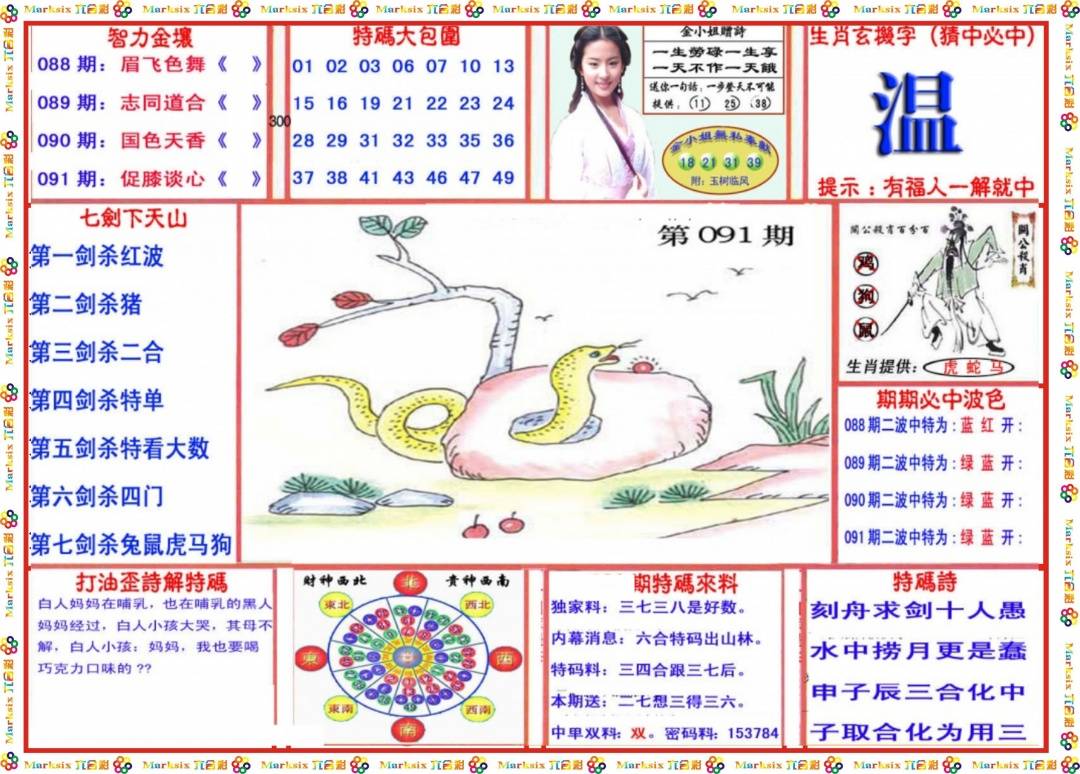 Marksix 六合彩
智力金壤
088 期：眉飞色舞《 》
089 期：志同道合《 》
090 期：国色天香《 》
091 期：促膝谈心《 》
300
特碼大包圍
01 02 03 06 07 10 13
15 16 19 21 22 23 24
28 29 31 32 33 35 36
37 38 41 43 46 47 49
金小姐赠詩
一生勞碌一生享
一天不作一天餓
送你一句話：一步登天不可能
提供：11 25 38
金小姐無私奉獻
18 21 31 39
附：玉树临风
生肖玄機字（猜中必中）
温
提示：有福人一解就中
七劍下天山
第一剑杀红波
第二剑杀猪
第三剑杀二合
第四剑杀特单
第五剑杀特看大数
第六剑杀四门
第七剑杀兔鼠虎马狗
第 091 期
關公殺肖百分百
關公殺肖
鸡
狗
鼠
生肖提供：虎 蛇 马
期期必中波色
088 期二波中特为：蓝 红 开：
089 期二波中特为：绿 蓝 开：
090 期二波中特为：绿 蓝 开：
091 期二波中特为：绿 蓝 开：
打油歪詩解特碼
白人妈妈在哺乳，也在哺乳的黑人
妈妈经过，白人小孩大哭，其母不
解，白人小孩：妈妈，我也要喝
巧克力口味的 ??
財神西北
貴神西南
北
東北
西北
東
西
東南
西南
南
期特碼來料
独家料：三七三八是好数。
内幕消息：六合特码出山林。
特码料：三四合跟三七后。
本期送：二七想三得三六。
中单双料：双。密码料：153784
特碼詩
刻舟求剑十人愚
水中捞月更是蠢
申子辰三合化中
子取合化为用三